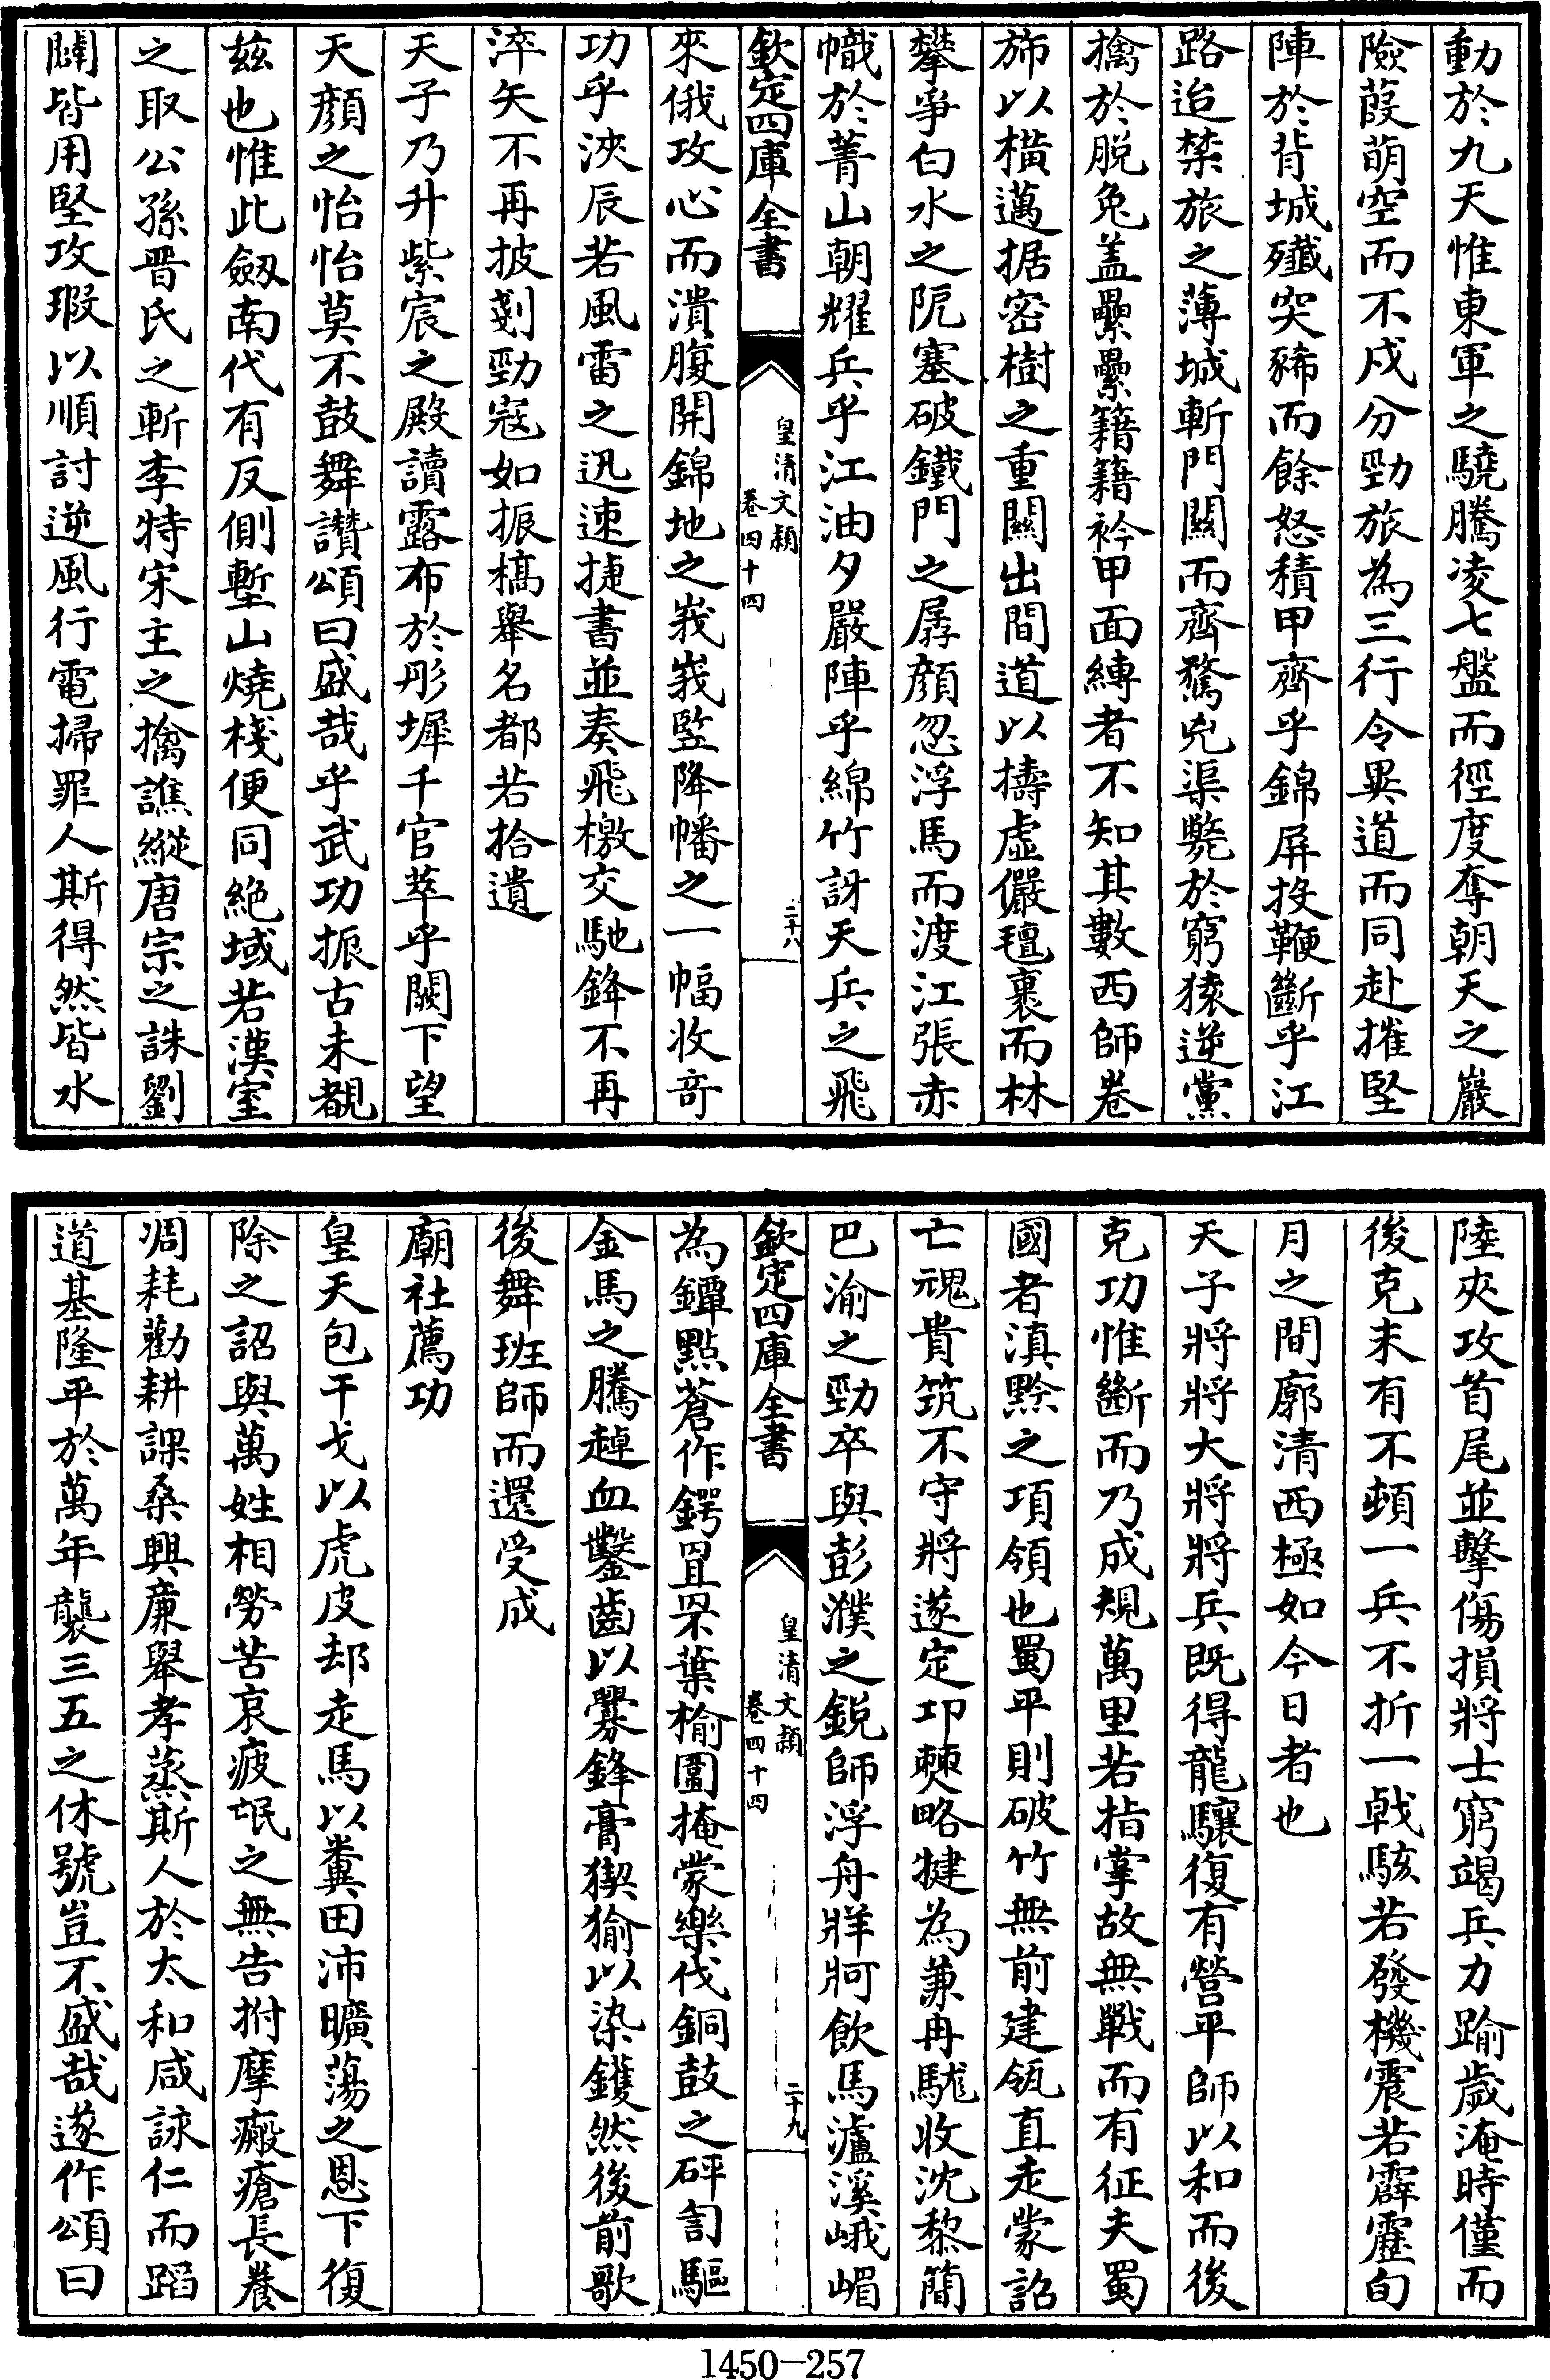 動於九天惟東軍之驍騰凌七盤而徑度奪朝天之巖
險葭萌空而不戍分勁旅為三行令異道而同赴摧堅
陣於背城殲突豨而餘怒積甲齊乎錦屏投鞭斷乎江
路迨禁旅之薄城斬門關而齊騖兇渠斃於窮猿逆黨
擒於脱兔盖纍纍籍籍衿甲面縳者不知其數西師卷
斾以橫邁据密樹之重關出間道以擣虛儼氊裹而林
攀爭白水之阨塞破鐵門之孱顔忽浮馬而渡江張赤
幟於菁山朝耀兵乎江油夕嚴陣乎綿竹訝天兵之飛
欽定四庫全書
皇清文穎
卷四十四
二十八
來俄攻心而潰腹開錦地之峩峩竪降幡之一幅收竒
功乎浹辰若風雷之迅速捷書並奏飛檄交馳鋒不再
淬矢不再披剗勁寇如振槁舉名都若拾遺
天子乃升紫宸之殿讀露布於彤墀千官萃乎闕下望
天顔之怡怡莫不鼓舞讚頌曰盛哉乎武功振古未覩
兹也惟此劔南代有反側塹山燒棧便同絶域若漢室
之取公孫晋氏之斬李特宋主之擒譙縱唐宗之誅劉
闢皆用堅攻瑕以順討逆風行電掃罪人斯得然皆水
陸夾攻首尾並擊傷損將士窮竭兵力踰歲淹時僅而
後克未有不頓一兵不折一戟駭若發機震若霹靂旬
月之間廓清西極如今日者也
天子將將大將將兵既得龍驤復有營平師以和而後
克功惟斷而乃成規萬里若指掌故無戰而有征夫蜀
國者滇黔之項領也蜀平則破竹無前建瓴直走蒙詔
亡魂貴筑不守將遂定卭僰略揵為兼冉駹收沈黎簡
巴渝之勁卒與彭濮之鋭師浮舟牂牁飲馬瀘溪峨嵋
欽定四庫全書
皇清文穎
卷四十四
二十九
為鐔點蒼作鍔罝罘葉榆圍掩蒙樂伐銅鼓之砰訇驅
金馬之騰趠血鑿齒以釁鋒膏猰㺄以染鑊然後前歌
後舞班師而還受成
廟社薦功
皇天包干戈以虎皮却走馬以糞田沛曠蕩之恩下復
除之詔與萬姓相勞苦哀疲氓之無告拊摩瘢瘡長養
凋耗勸耕課桑興廉舉孝蒸斯人於太和咸詠仁而蹈
道基隆平於萬年襲三五之休號豈不盛哉遂作頌曰
1450-257